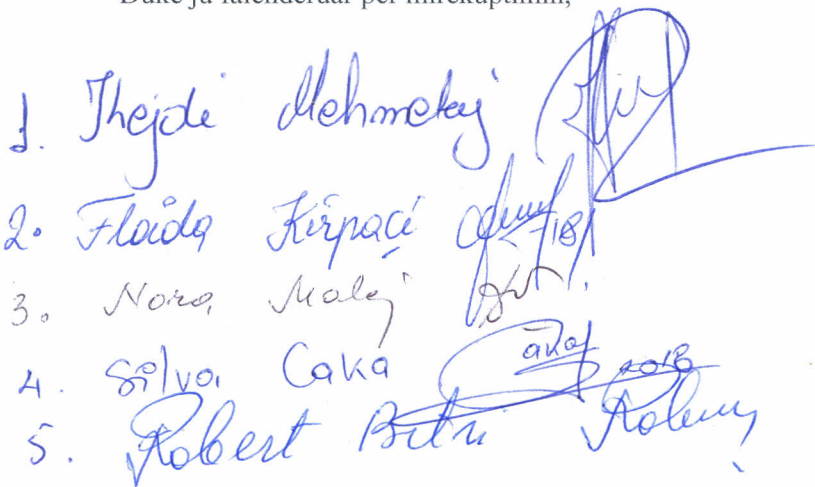 Duke ju falenderuar për mirëkuptimin,
1. Jhejdi Mehmetaj
2. Floida Kërpaçi
3. Nora Malaj
4. Silva Caka Caka 2018
5. Robert Bitri